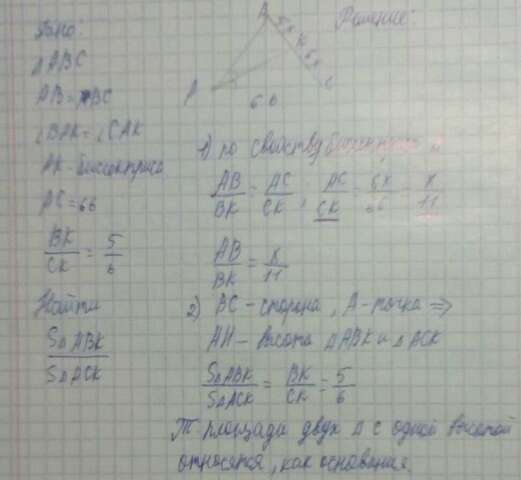 Дано:
Δ ABC
AB = BC
∠BAK = ∠CAK
AK - биссектриса
AC = 66
BK/CK = 5/6
Найти
SΔABK/SΔACK
Решение:
B
5x
K
6x
A
C
66
1) по свойству биссектрисы
AB/BK = AC/CK ; AC/CK = 6x/66 = x/11
AB/BK = x/11
2) BC - сторона, A - точка ⇒
AH - высота ΔABK и ΔACK
SΔABK/SΔACK = BK/CK = 5/6
Т площади двух Δ с одной высотой
относятся, как основания.